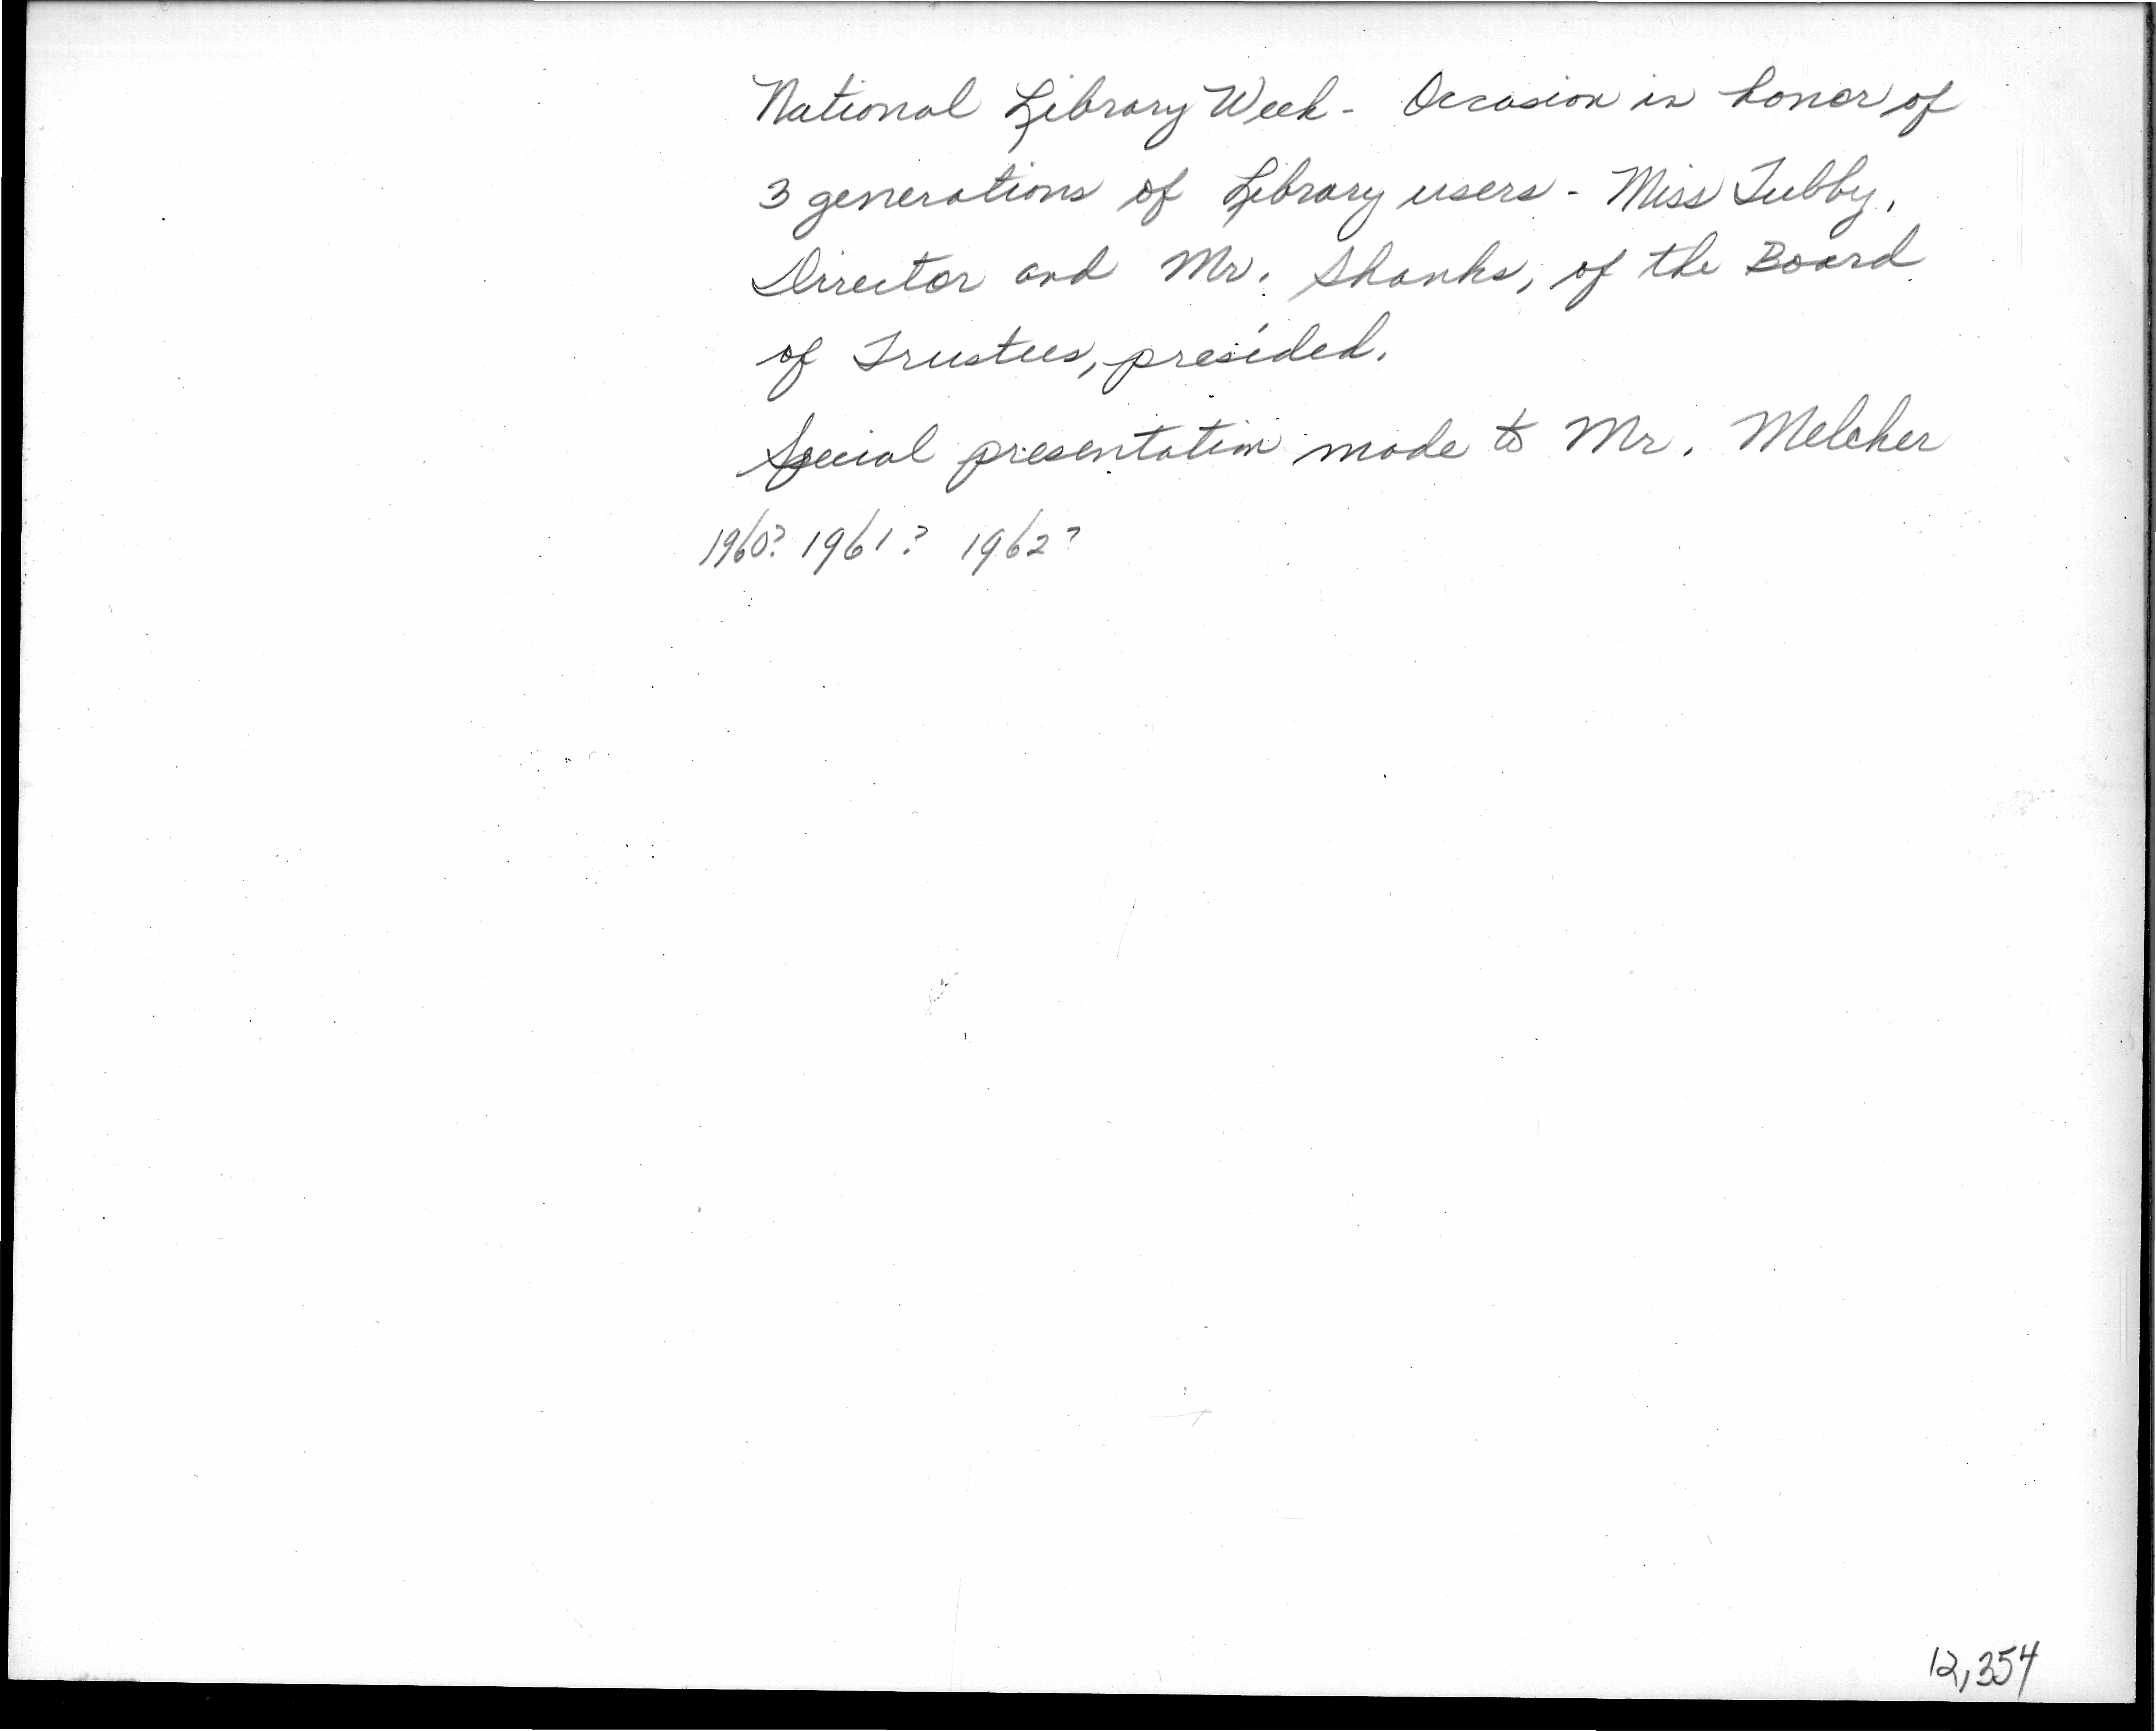 National Library Week - Occasion in honor of
3 generations of Library users - Miss Tubby,
Director and Mr. Shanks, of the Board
of Trustees, presided.
Special presentation made to Mr. Melcher
1960? 1961? 1962?
12,354